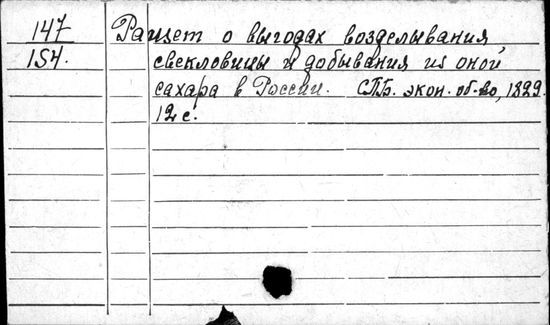 147 Расчет о выгодах возделывания
154. свекловицы и добывания из оной
сахара в России. СПБ. экон. об-во, 1829.
12 с.